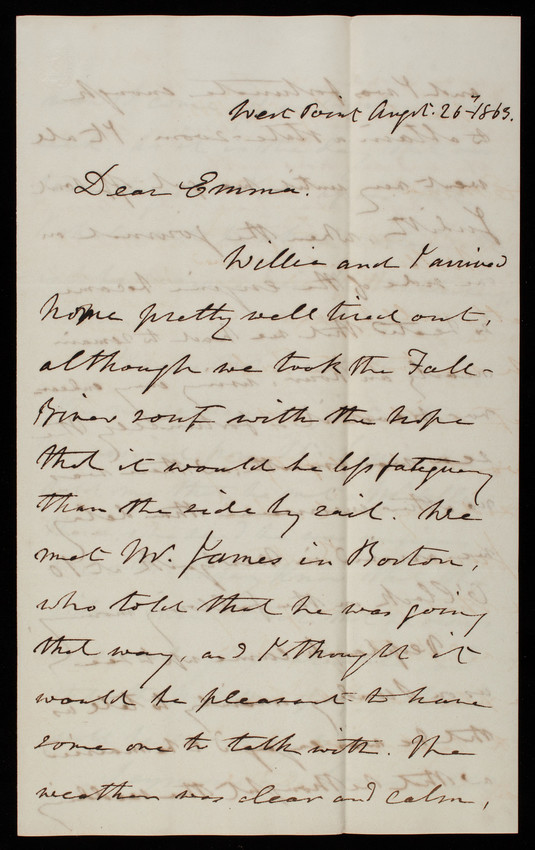 West Point Augst. 26th 1863.
Dear Emma.
Willie and I arrived
home pretty well tired out,
although we took the Fall-
River rout with the hope
that it would be less fatiguing
than the ride by rail. We
met Mr. James in Boston,
who told that he was going
that way, and I thought it
would be pleasant to have
some one to talk with. The
weather was clear and calm,